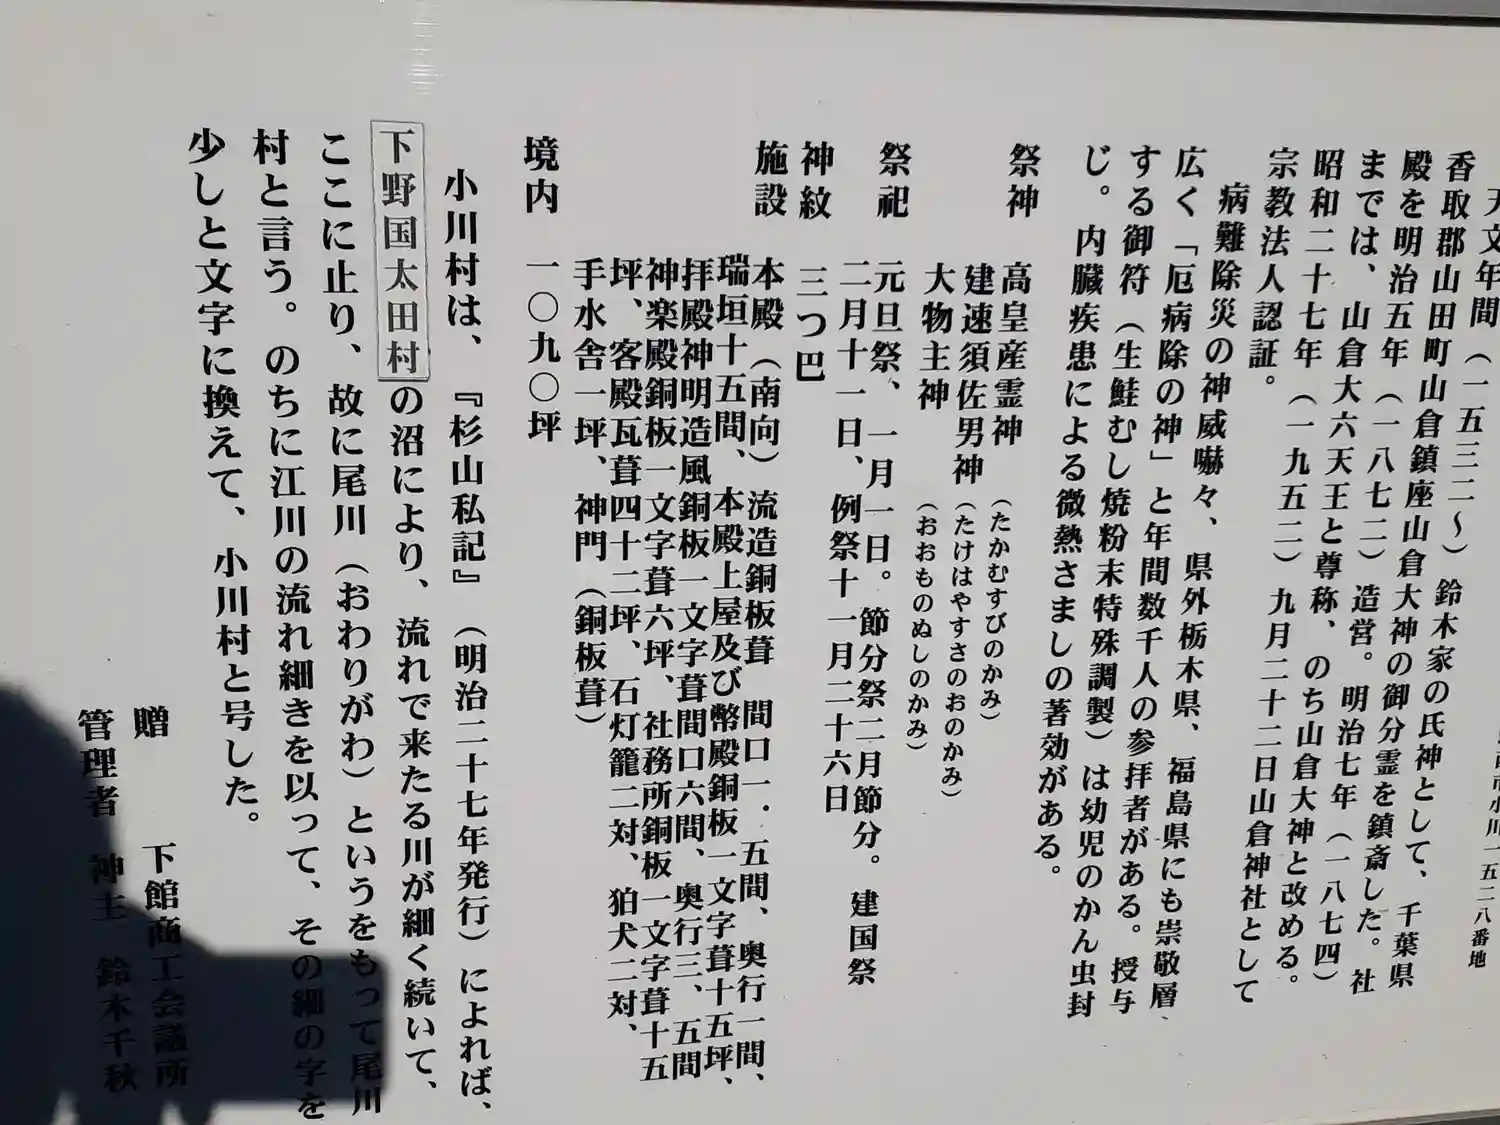 小川一五二八番地
天文年間(一五三二〜)鈴木家の氏神として、千葉県
香取郡山田町山倉鎮座山倉大神の御分霊を鎮斎した。社
殿を明治五年(一八七二)造営。明治七年(一八七四)
までは、山倉大六天王と尊称、のち山倉大神と改める。
昭和二十七年(一九五二)九月二十二日山倉神社として
宗教法人認証。
病難除災の神威嚇々、県外栃木県、福島県にも崇敬層
広く「厄病除の神」と年間数千人の参拝者がある。授与
する御符(生鮭むし焼粉末特殊調製)は幼児のかん虫封
じ。内臓疾患による微熱さましの著効がある。
祭神 高皇産霊神(たかむすびのかみ)
建速須佐男神(たけはやすさのおのかみ)
大物主神(おおものぬしのかみ)
祭祀 元旦祭、一月一日。節分祭二月節分。建国祭
二月十一日、例祭十一月二十六日
神紋 三つ巴
施設 本殿(南向)流造銅板葺 間口一.五間、奥行一間、
瑞垣十五間、本殿上屋及び幣殿銅板一文字葺十五坪、
拝殿神明造風銅板一文字葺間口六間、奥行三、五間
神楽殿銅板一文字葺六坪、社務所銅板一文字葺十五
坪、客殿瓦葺四十二坪、石灯籠二対、狛犬二対、
手水舎一坪、神門(銅板葺)
境内 一〇九〇坪
小川村は、『杉山私記』(明治二十七年発行)によれば、
下野国太田村の沼により、流れで来たる川が細く続いて、
ここに止り、故に尾川(おわりがわ)というをもって尾川
村と言う。のちに江川の流れ細きを以って、その細の字を
少しと文字に換えて、小川村と号した。
贈 下館商工会議所
管理者 神主 鈴木千秋